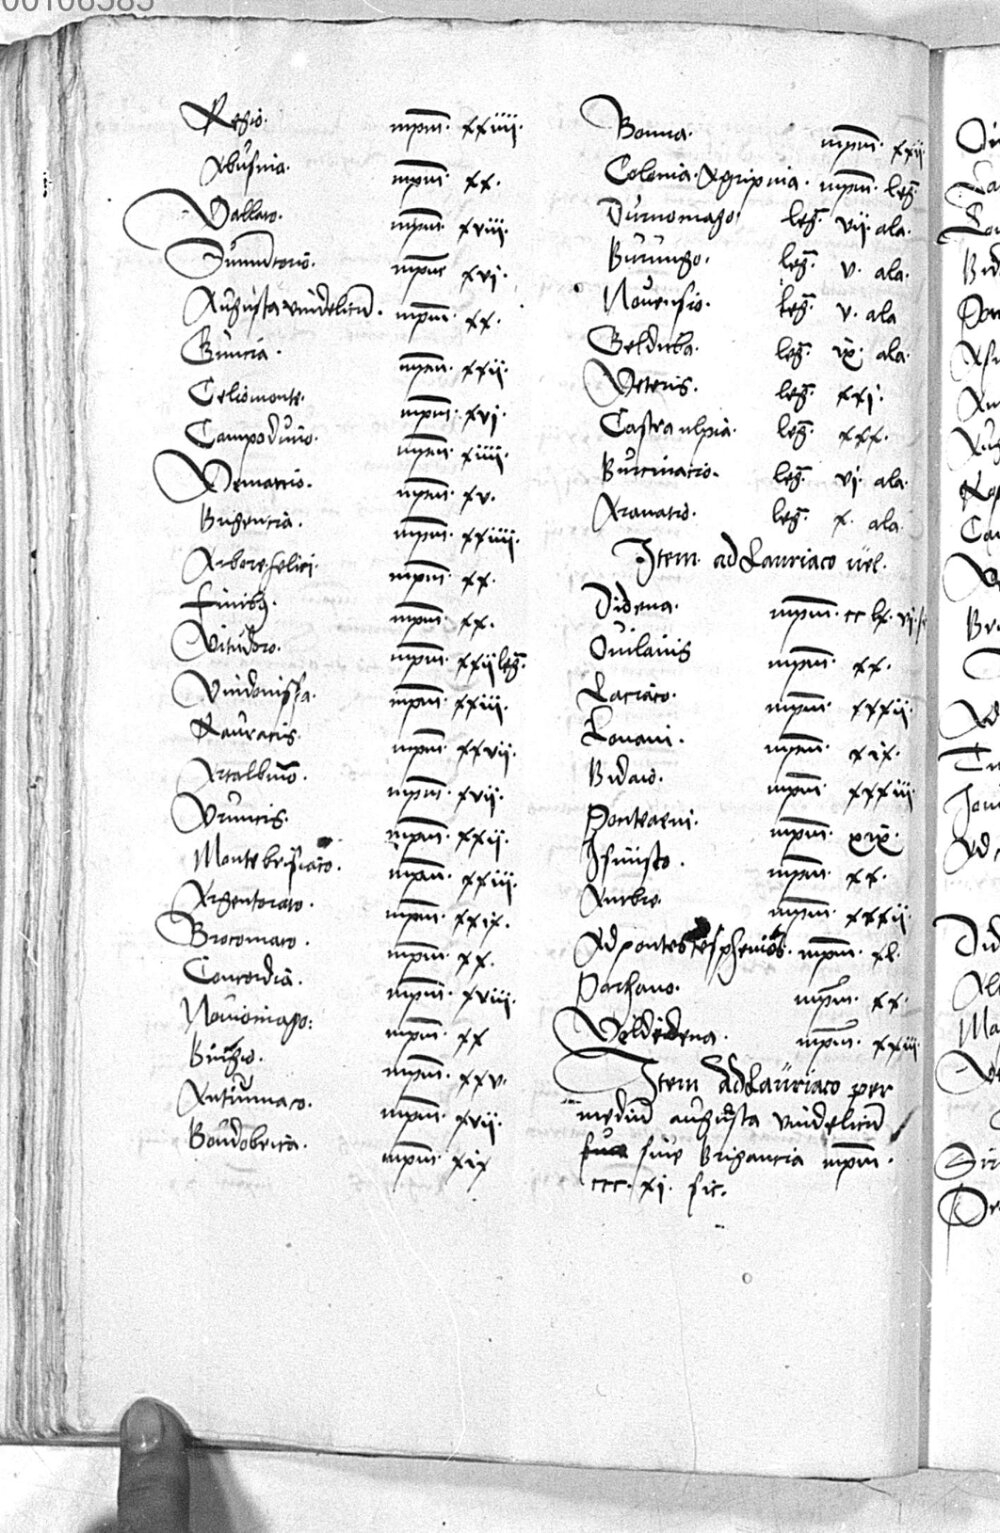 00108385
Regio. mpm. xxiiii.
Abusina. mpm. xx.
Vallato. mpm. xviii.
Summtorio. mpm xvi.
Augusta vindelicũ. mpm. xx.
Guncia. mpm. xxii.
Celiomonte. mpm. xvi.
Campoduno. mpm. xiiii.
Vemannio. mpm. xv.
Brigencia. mpm. xxiiii.
Arbore felici. mpm. xx.
Finibꝫ. mpm. xx.
Vitudoro. mpm. xxii leg̃.
Vindonissa. mpm. xxiii.
Rauracis. mpm. xxvii.
Artalbino. mpm. xvii.
Uruncis. mpm. xxii.
Monte brisiaco. mpm. xxiii.
Argentorato. mpm. xxix.
Brocomaco. mpm. xx.
Concordia. mpm. xviii.
Noviomago: mpm. xx
Bingio. mpm. xxv.
Antunnaco. mpm. xvii.
Boudobrica. mpm. xix
Bonna. mpm. xxii
Colonia. Agripina. mpm. leg̃.
Durnomago leg̃. vii. ala.
Burungo. leg̃. v. ala.
Novensio. leg̃. v. ala
Gelduba. leg̃. ix. ala.
Veteris. leg̃. xxi.
Castra ulpia. leg̃. xxx.
Burcinatio. leg̃. vi. ala.
Aranatio. leg̃. x. ala.
Item ad Lauriaco vel.
Didena. mpm. cc lx. vi. s
Ovilavis mpm. xx.
Laciaco. mpm. xxxii.
Iovavi. mpm. xix.
Bidaio. mpm. xxxiii
Ponteaeni. mpm. xix.
Isinisto. mpm. xx.
Ambre. mpm. xxxii
Ad pontes tesphenios. mpm. xl.
Parthano. mpm. xx.
Veldidena. mpm. xxiii
Item Ad Lauriaco per
mediũ augusta vindelicũ
sive Brigancia mpm.
ccc. xi. sic.